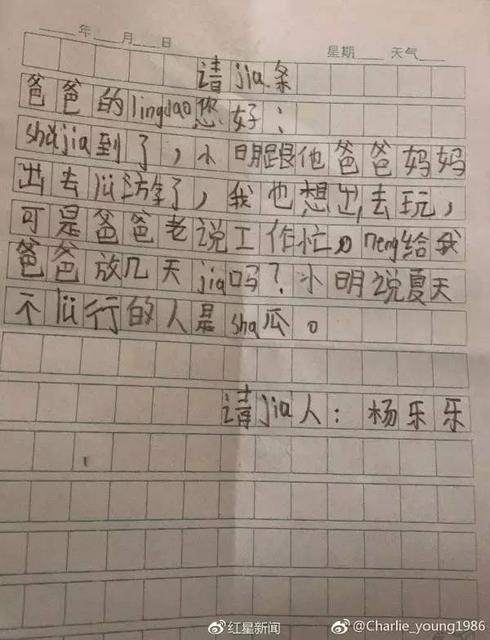 年 月 日 星期 天气
请jia条
爸爸的lingdao您好:
shǔjia到了,小明跟他爸爸妈妈
出去lü游了,我也想出去玩,
可是爸爸老说工作忙。neng给我
爸爸放几天jia吗?小明说夏天
不lü行的人是sha瓜。
请jia人:杨乐乐
红星新闻 @Charlie_young1986